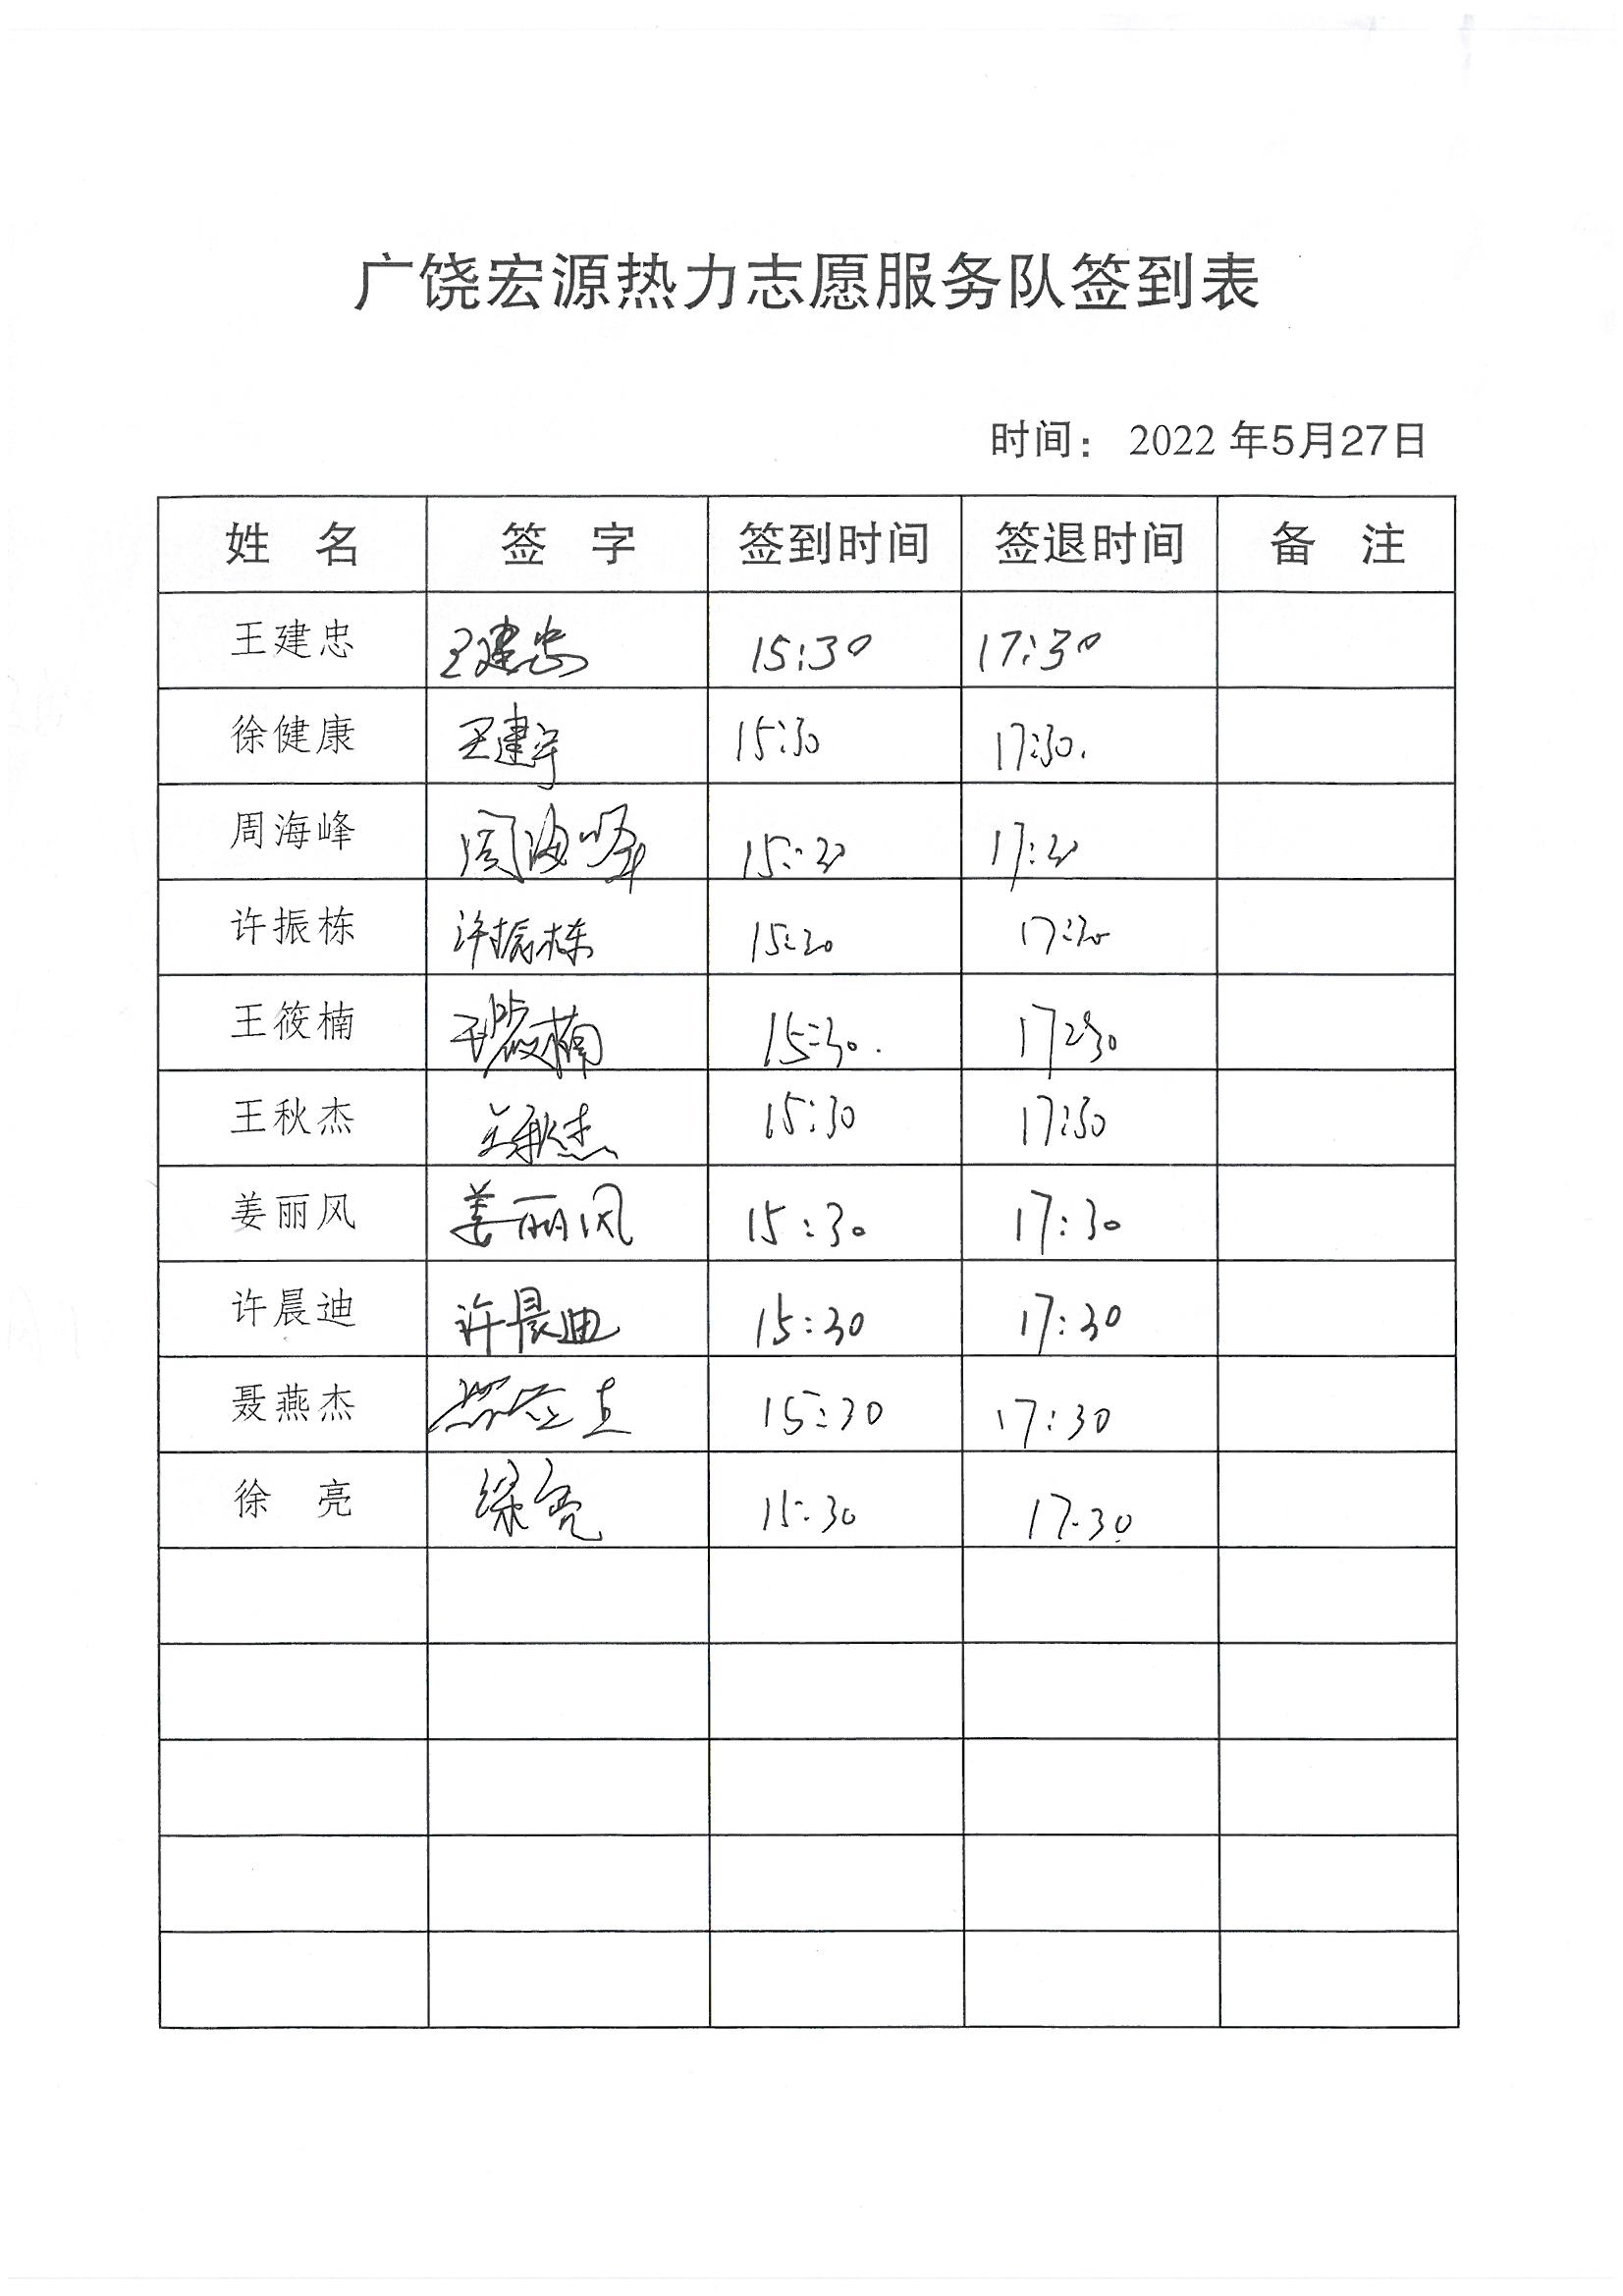 广饶宏源热力志愿服务队签到表
时间： 2022 年5月27日
姓 名 签 字 签到时间 签退时间 备 注
王建忠 王建忠 15:30 17:30
徐健康 王建宇 15:30 17:30.
周海峰 周海峰 15:30 17:30
许振栋 许振栋 15:30 17:30
王筱楠 王筱楠 15:30. 17:30
王秋杰 王秋杰 15:30 17:30
姜丽风 姜丽风 15:30 17:30
许晨迪 许晨迪 15:30 17:30
聂燕杰 15:30 17:30
徐 亮 徐亮 15:30 17:30